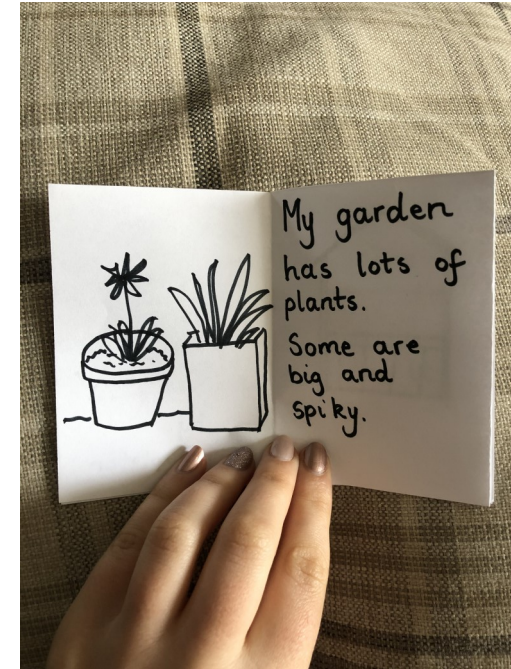 My garden
has lots of
plants.
Some are
big and
spiky.